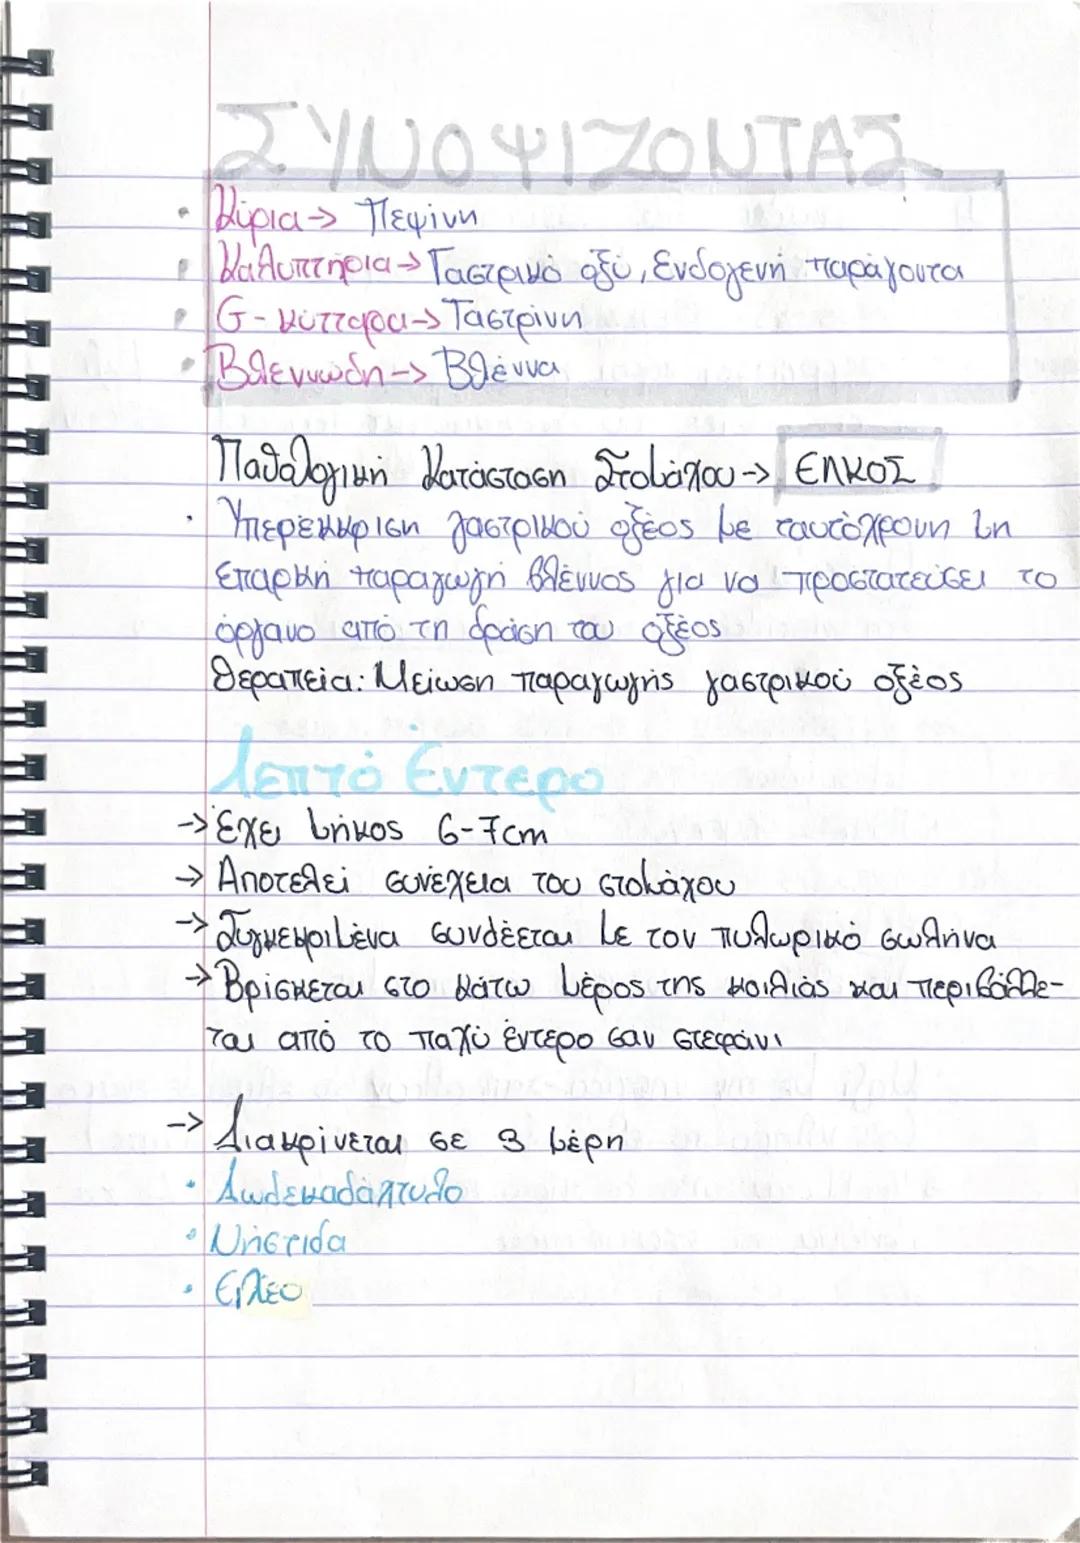 ΣΥΝΟΨΙΖΟΝΤΑΣ
• Κύρια → Πεψίνη
• Καλυπτήρια → Γαστρικό οξύ, Ενδογενή παράγοντα
• G - κύτταρα → Γαστρίνη
• Βλεννώδη → Βλέννα
Παθολογική Κατάσταση Στομάχου → ΕΛΚΟΣ
• Υπερέκκριση γαστρικού οξέος με ταυτόχρονη μη
επαρκή παραγωγή βλέννος για να προστατεύσει το
όργανο από τη δράση του οξέος
Θεραπεία: Μείωση παραγωγής γαστρικού οξέος
Λεπτό Έντερο
→ Έχει μήκος 6-7cm
→ Αποτελεί συνέχεια του στομάχου
→ Συγκεκριμένα συνδέεται με τον πυλωρικό σωλήνα
→ Βρίσκεται στο κάτω μέρος της κοιλιάς και περιβάλλε-
ται από το παχύ έντερο σαν στεφάνι
→ Διακρίνεται σε 3 μέρη
• Δωδεκαδάκτυλο
• Νήστιδα
• Ειλεό